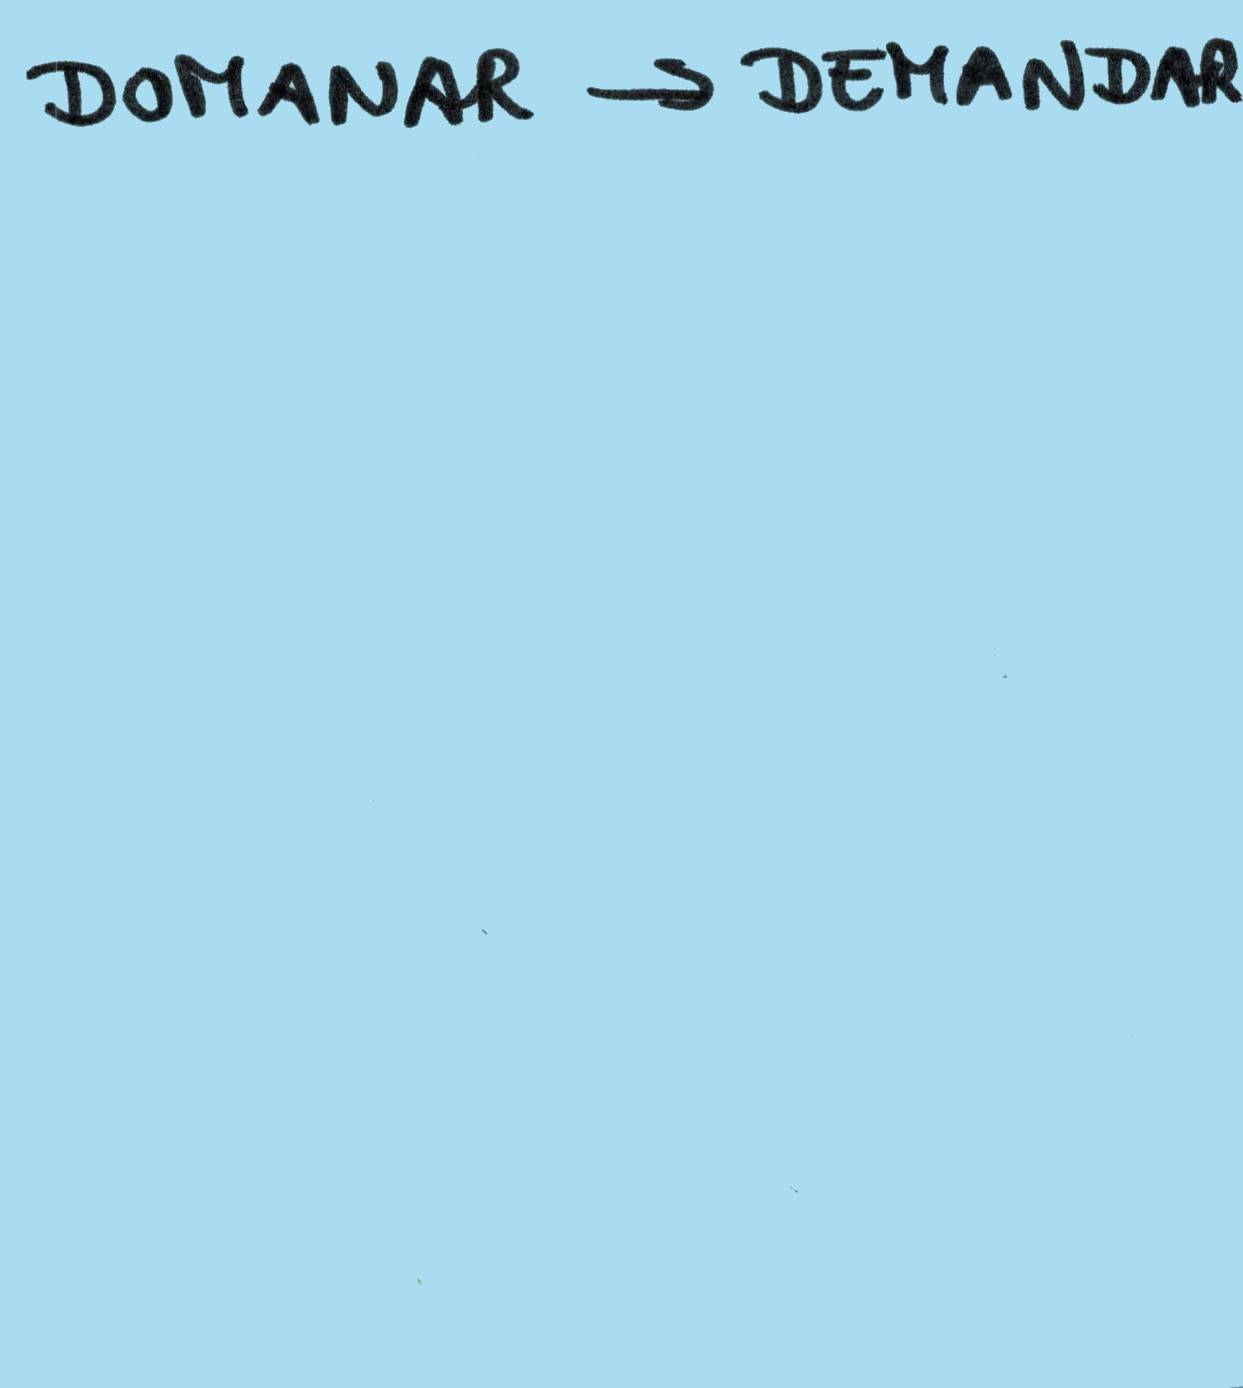 DOMANAR → DEMANDAR